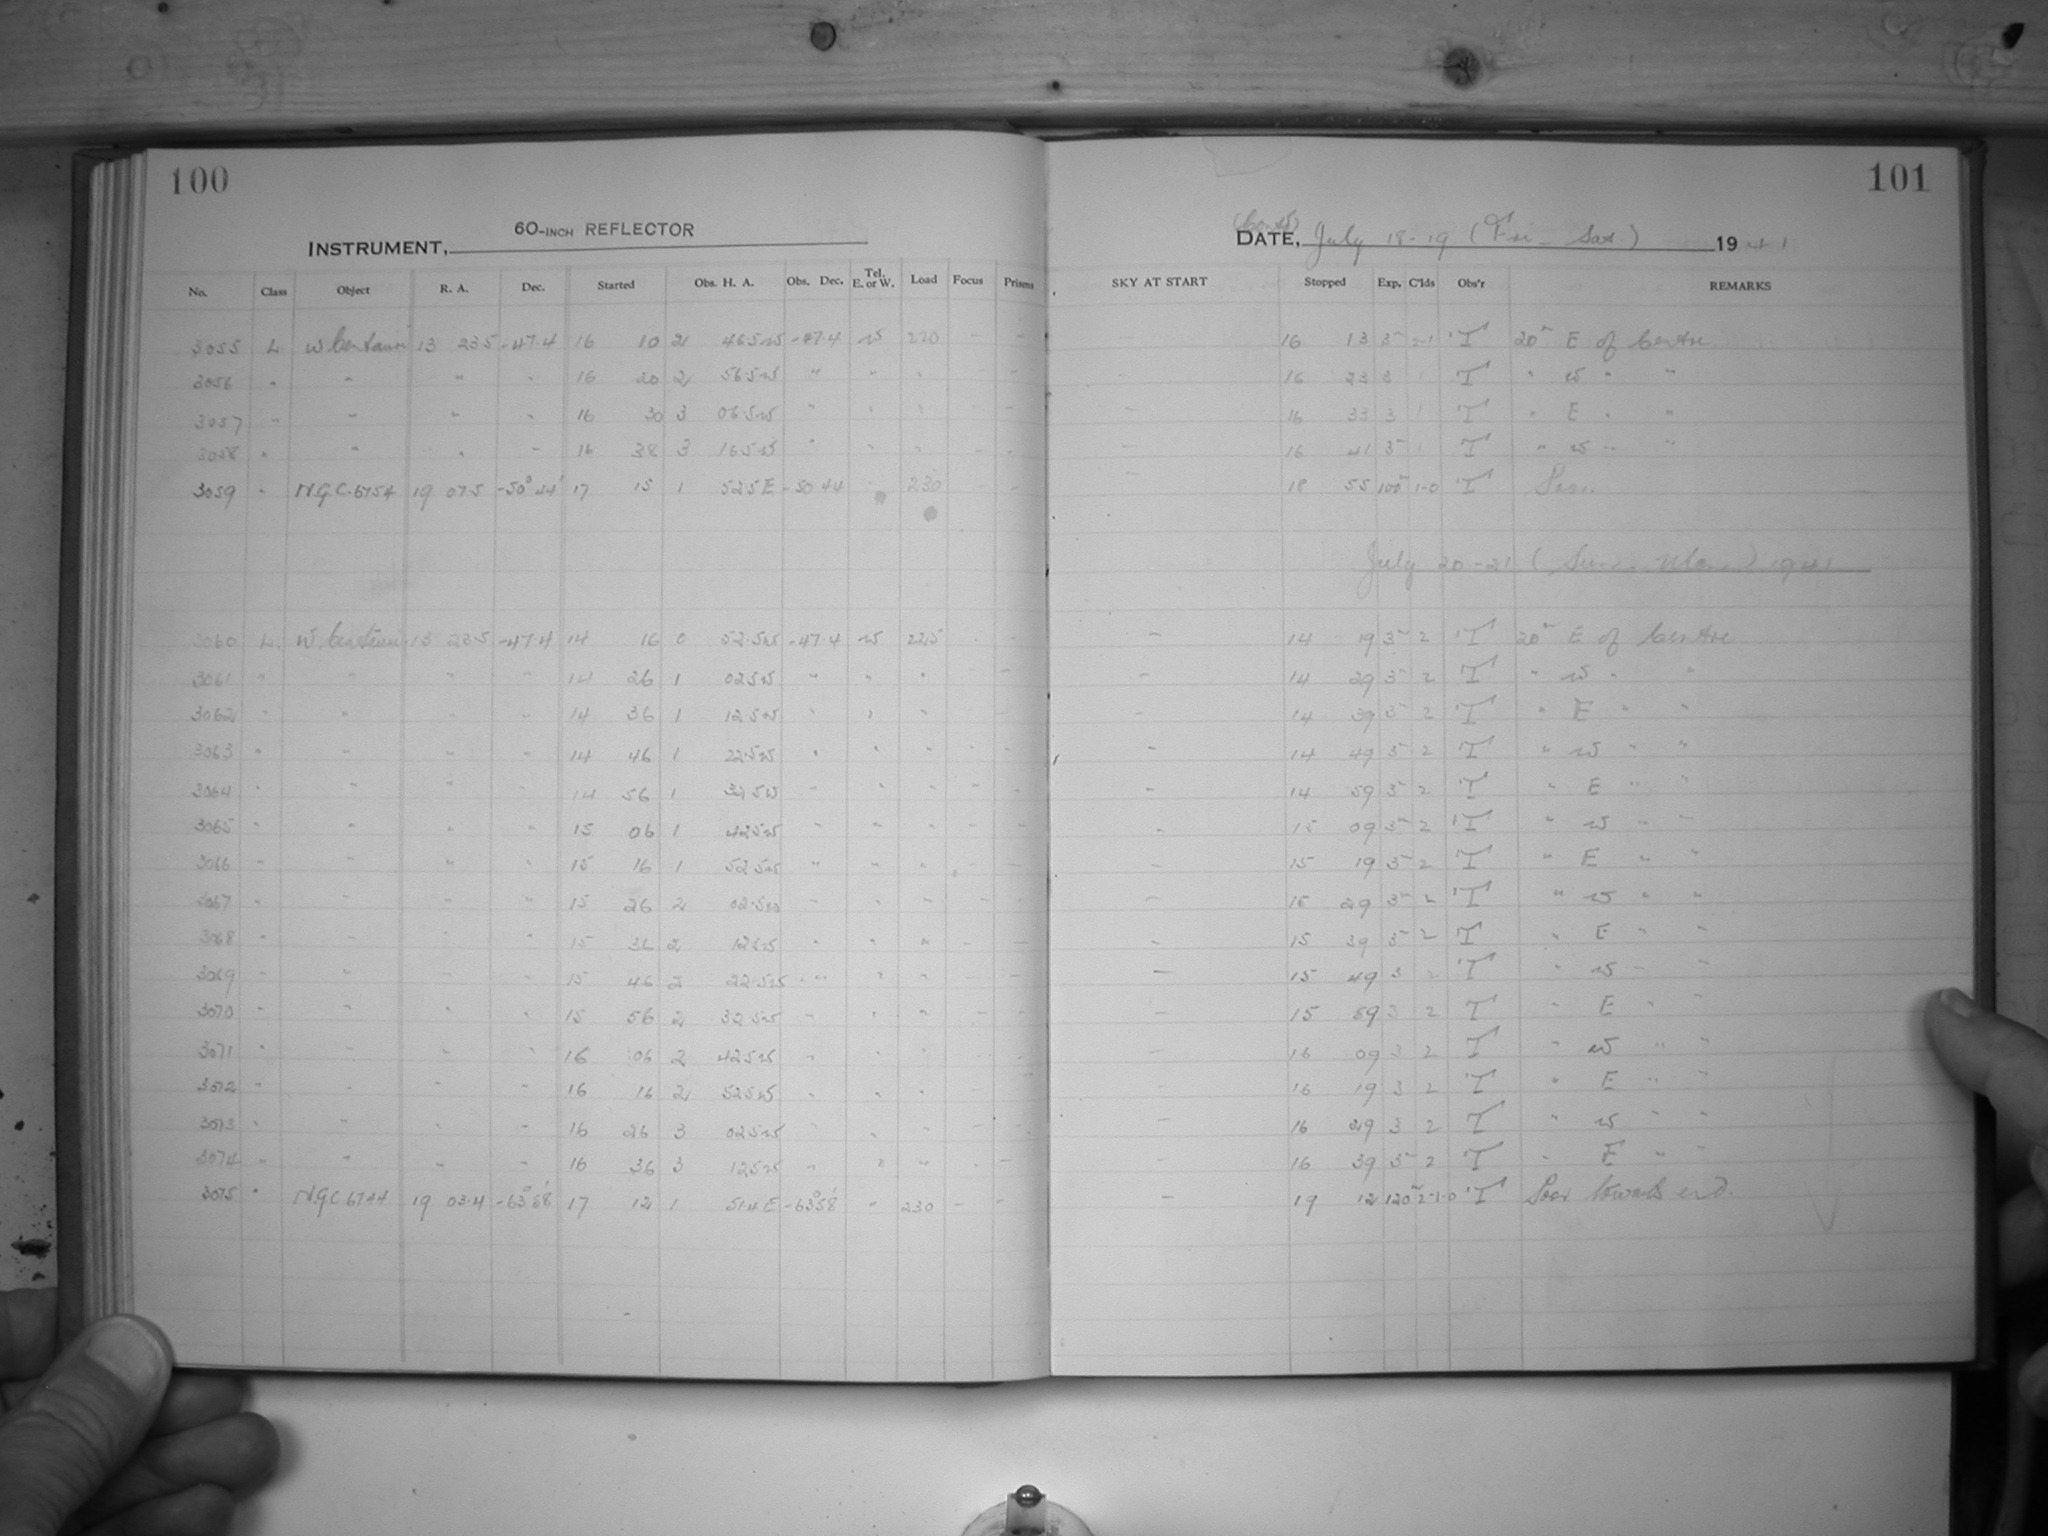 100
101
INSTRUMENT, 60-INCH REFLECTOR
(Cont'd) DATE, July 18-19 (Fri - Sat.) 1941
No. Class Object R. A. Dec. Started Obs. H. A. Obs. Dec. Tel. E. or W. Load Focus Prisms SKY AT START Stopped Exp. C'lds Obs'r REMARKS
3055 L W Centauri 13 23.5 -47.4 16 10 2 46.5 W -47.4 W 220 - - - 16 13 3m 2-1 T 20m E of Centre
3056 " " " " 16 20 2 56.5 W " " " - - - 16 23 3 1 T " W " "
3057 " " " " 16 30 3 06.5 W " " " - - - 16 33 3 1 T " E " "
3058 " " " " 16 38 3 16.5 W " " " - - - 16 41 3m 1 T " W " "
3059 " N.G.C. 6754 19 07.5 -50° 44' 17 15 1 52.5 E -50 44 230 - - - 18 55 100m 1-0 T
July 20-21 (Sun - Mon) 1941
3060 L. W Centauri 13 23.5 -47.4 14 16 0 52.5 W -47.4 W 225 - - - 14 19 3m 2 T 20m E of Centre
3061 " " " " 14 26 1 02.5 W " " " - - - 14 29 3m 2 T " W " "
3062 " " " " 14 36 1 12.5 W " " " - - - 14 39 3m 2 T " E " "
3063 " " " " 14 46 1 22.5 W " " " - - - 14 49 3m 2 T " W " "
3064 " " " " 14 56 1 32.5 W " " " - - - 14 59 3m 2 T " E " "
3065 " " " " 15 06 1 42.5 W " " " - - - 15 09 3m 2 T " W " "
3066 " " " " 15 16 1 52.5 W " " " - - - 15 19 3m 2 T " E " "
3067 " " " " 15 26 2 02.5 W " " " - - - 15 29 3m 2 T " W " "
3068 " " " " 15 36 2 12.5 W " " " - - - 15 39 3m 2 T " E " "
3069 " " " " 15 46 2 22.5 W " " " - - - 15 49 3 2 T " W " "
3070 " " " " 15 56 2 32.5 W " " " - - - 15 59 3 2 T " E " "
3071 " " " " 16 06 2 42.5 W " " " - - - 16 09 3 2 T " W " "
3072 " " " " 16 16 2 52.5 W " " " - - - 16 19 3 2 T " E " "
3073 " " " " 16 26 3 02.5 W " " " - - - 16 29 3 2 T " W " "
3074 " " " " 16 36 3 12.5 W " " " - - - 16 39 3m 2 T " E " "
3075 " NGC 6744 19 03.4 -63° 58' 17 12 1 51.4 E -63° 58' " 230 - - - 19 12 120m 2-1-0 T Poor towards end.